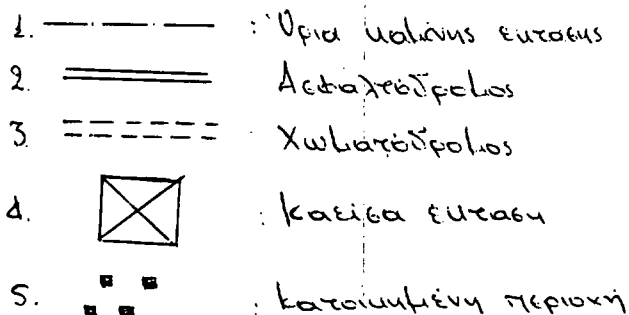 1. : Όρια καμένης εκτασης
2. Ασφαλτόδρομος
3. Χωματόδρομος
4. : Καείσα εκταση
5. : Κατοικημένη περιοχή